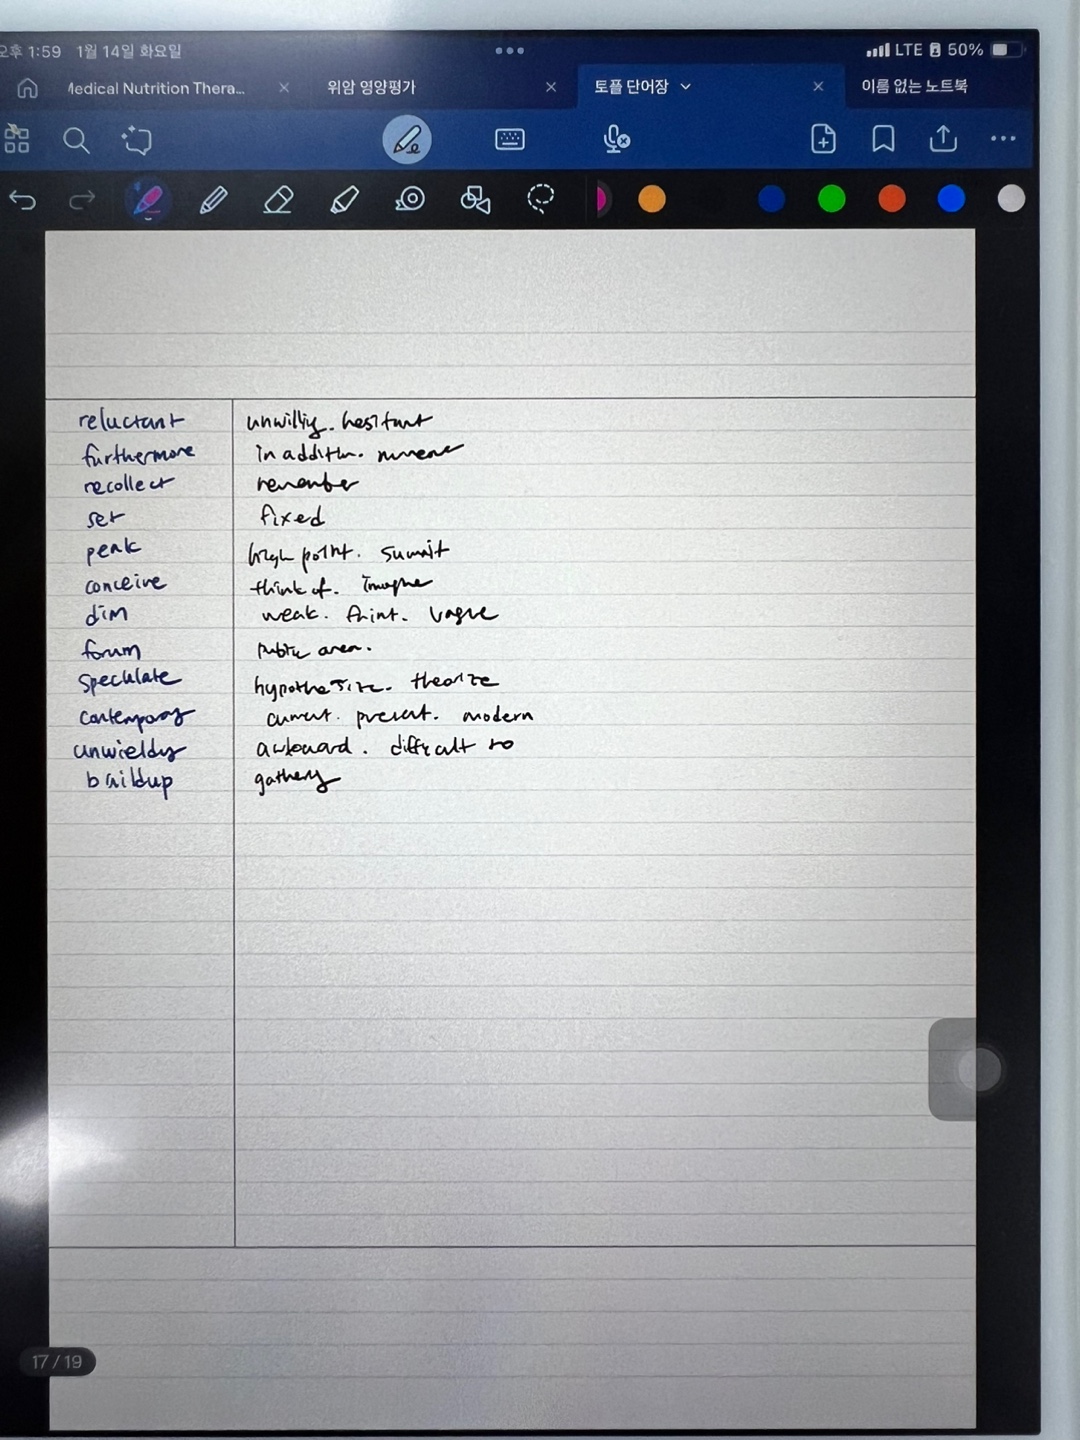 오후 1:59 1월 14일 화요일 LTE 50%
Medical Nutrition Thera... 위암 영양평가 토플 단어장 이름 없는 노트북
reluctant unwillig. hesitant
furthermore in addition. moreover
recollect remember
set fixed
peak high point. summit
conceive think of. imagine
dim weak. faint. vague
forum public area.
speculate hypothesize. theorize
contemporary current. present. modern
unwieldy awkward. difficult to
buildup gathery
17 / 19